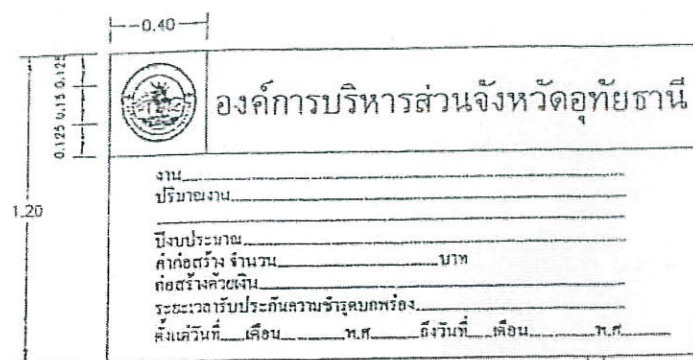 0.40
0.125 0.15 0.125
องค์การบริหารส่วนจังหวัดอุทัยธานี
1.20
งาน
ปริมาณงาน
ปีงบประมาณ
ค่าก่อสร้าง จำนวน บาท
ก่อสร้างด้วยเงิน
ระยะเวลารับประกันความชำรุดบกพร่อง
ตั้งแต่วันที่ เดือน พ.ศ. ถึงวันที่ เดือน พ.ศ.